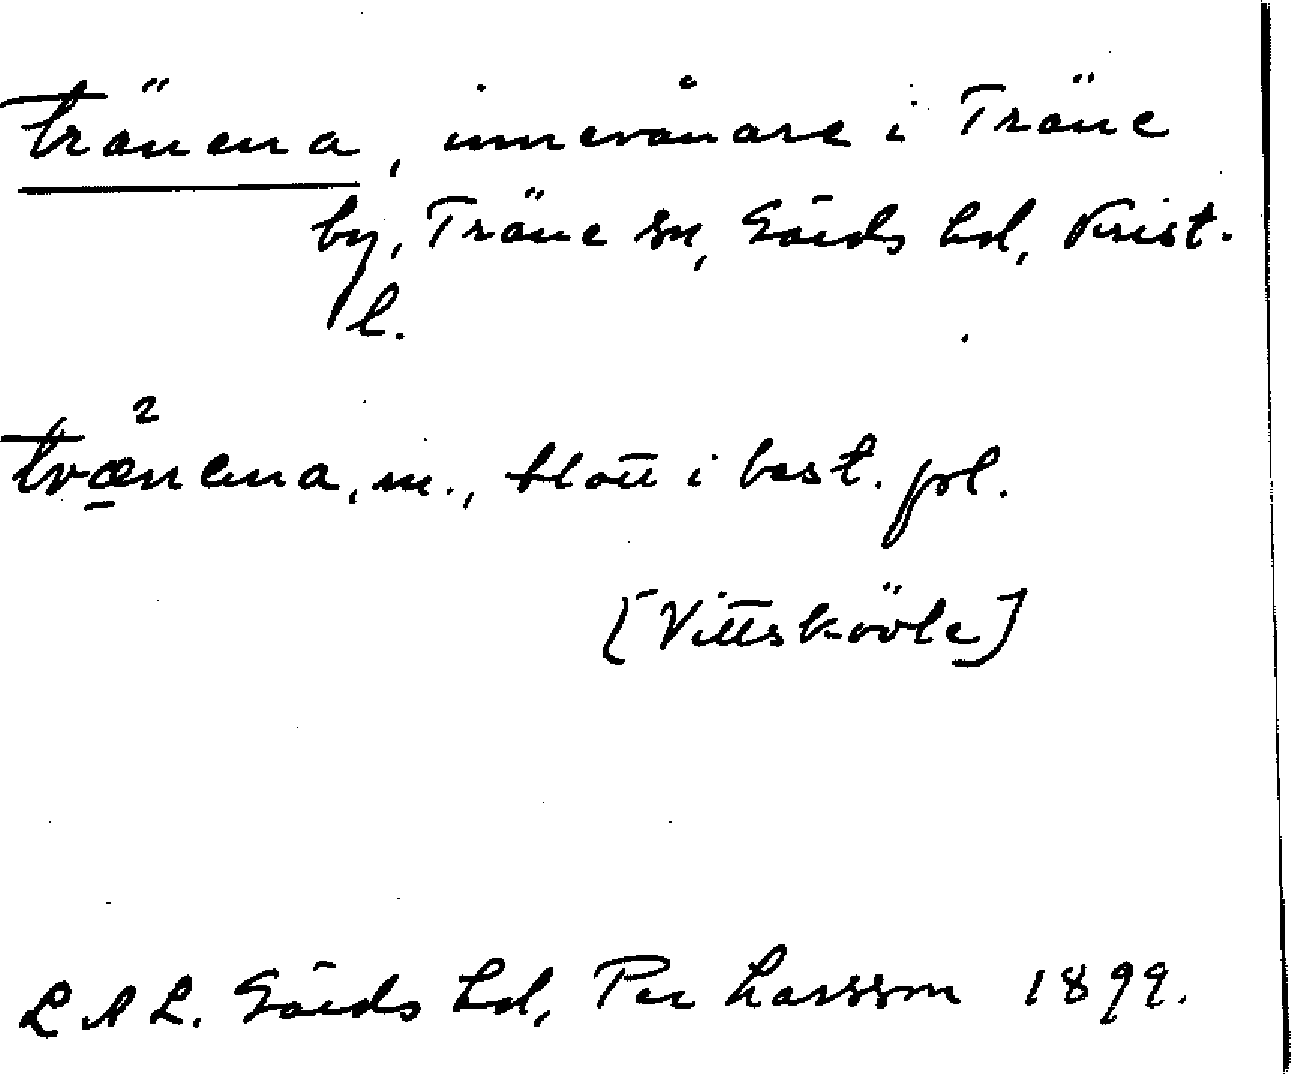 tränena, innevånare i Träne
by, Träne sn, Gärds hd, Krist.
l.
træ²nena, m., blott i best. pl.
[Vittskövle]
LAL. Gärds hd, Per Larsson 1899.